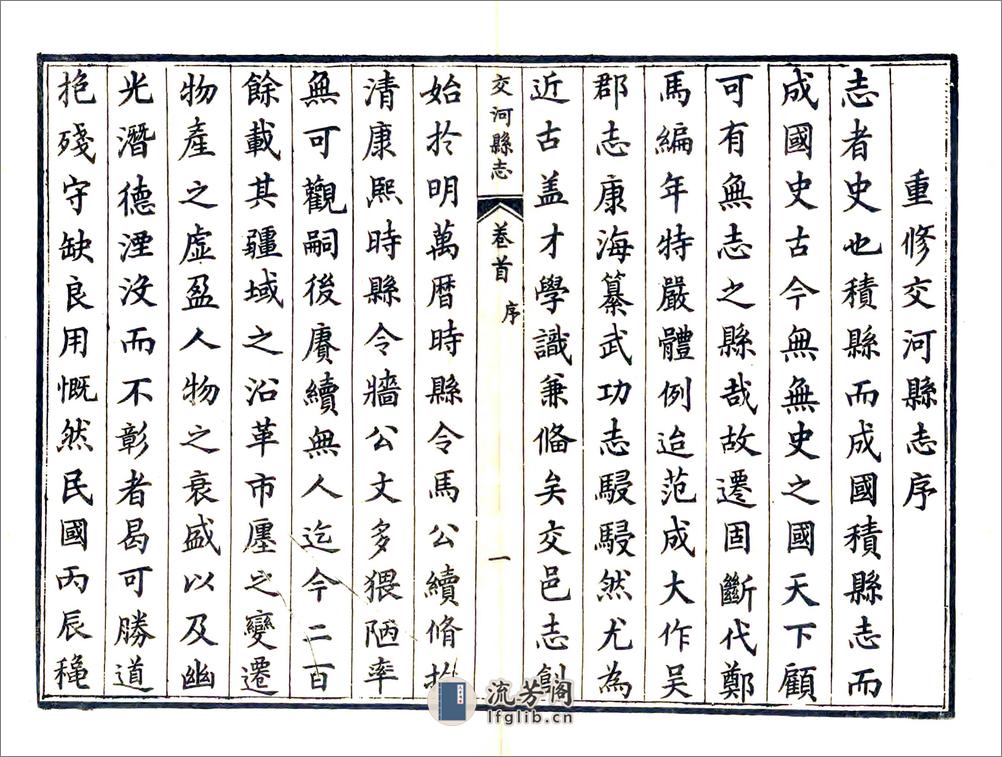 重修交河縣志序
志者史也積縣而成國積縣志而
成國史古今無無史之國天下顧
可有無志之縣哉故遷固斷代鄭
馬編年特嚴體例迨范成大作吳
郡志康海纂武功志駸駸然尤為
近古盖才學識兼俻矣交邑志創
交河縣志 卷首 序 一
始於明萬曆時縣令馬公續脩於
清康熙時縣令牆公文多猥陋率
無可觀嗣後賡續無人迄今二百
餘載其疆域之沿革市廛之變遷
物產之虛盈人物之衰盛以及幽
光潛德湮沒而不彰者曷可勝道
抱殘守缺良用慨然民國丙辰穐
流芳閣
lfglib.cn